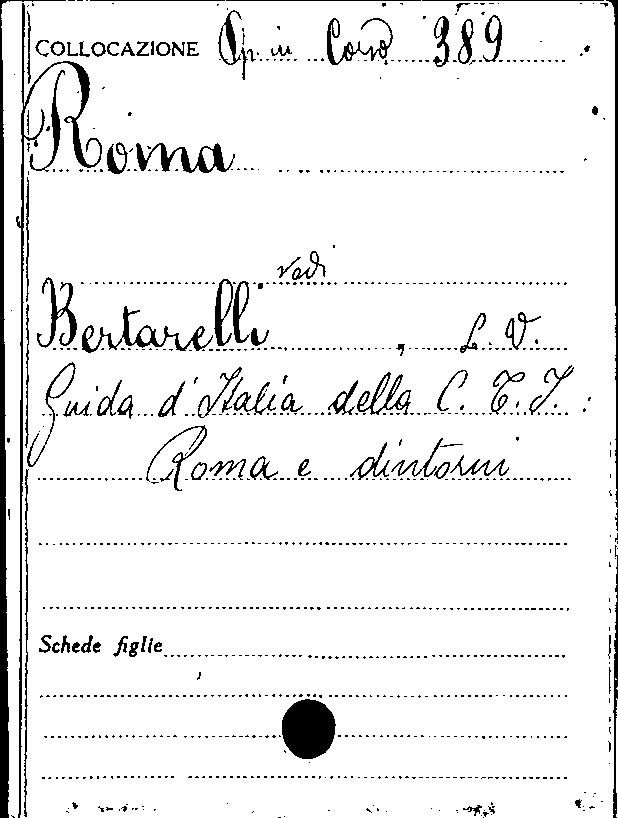 COLLOCAZIONE Op. in Corso 389
Roma
vedi
Bertarelli, L. V.
Guida d'Italia della C. T. I. :
Roma e dintorni
Schede figlie